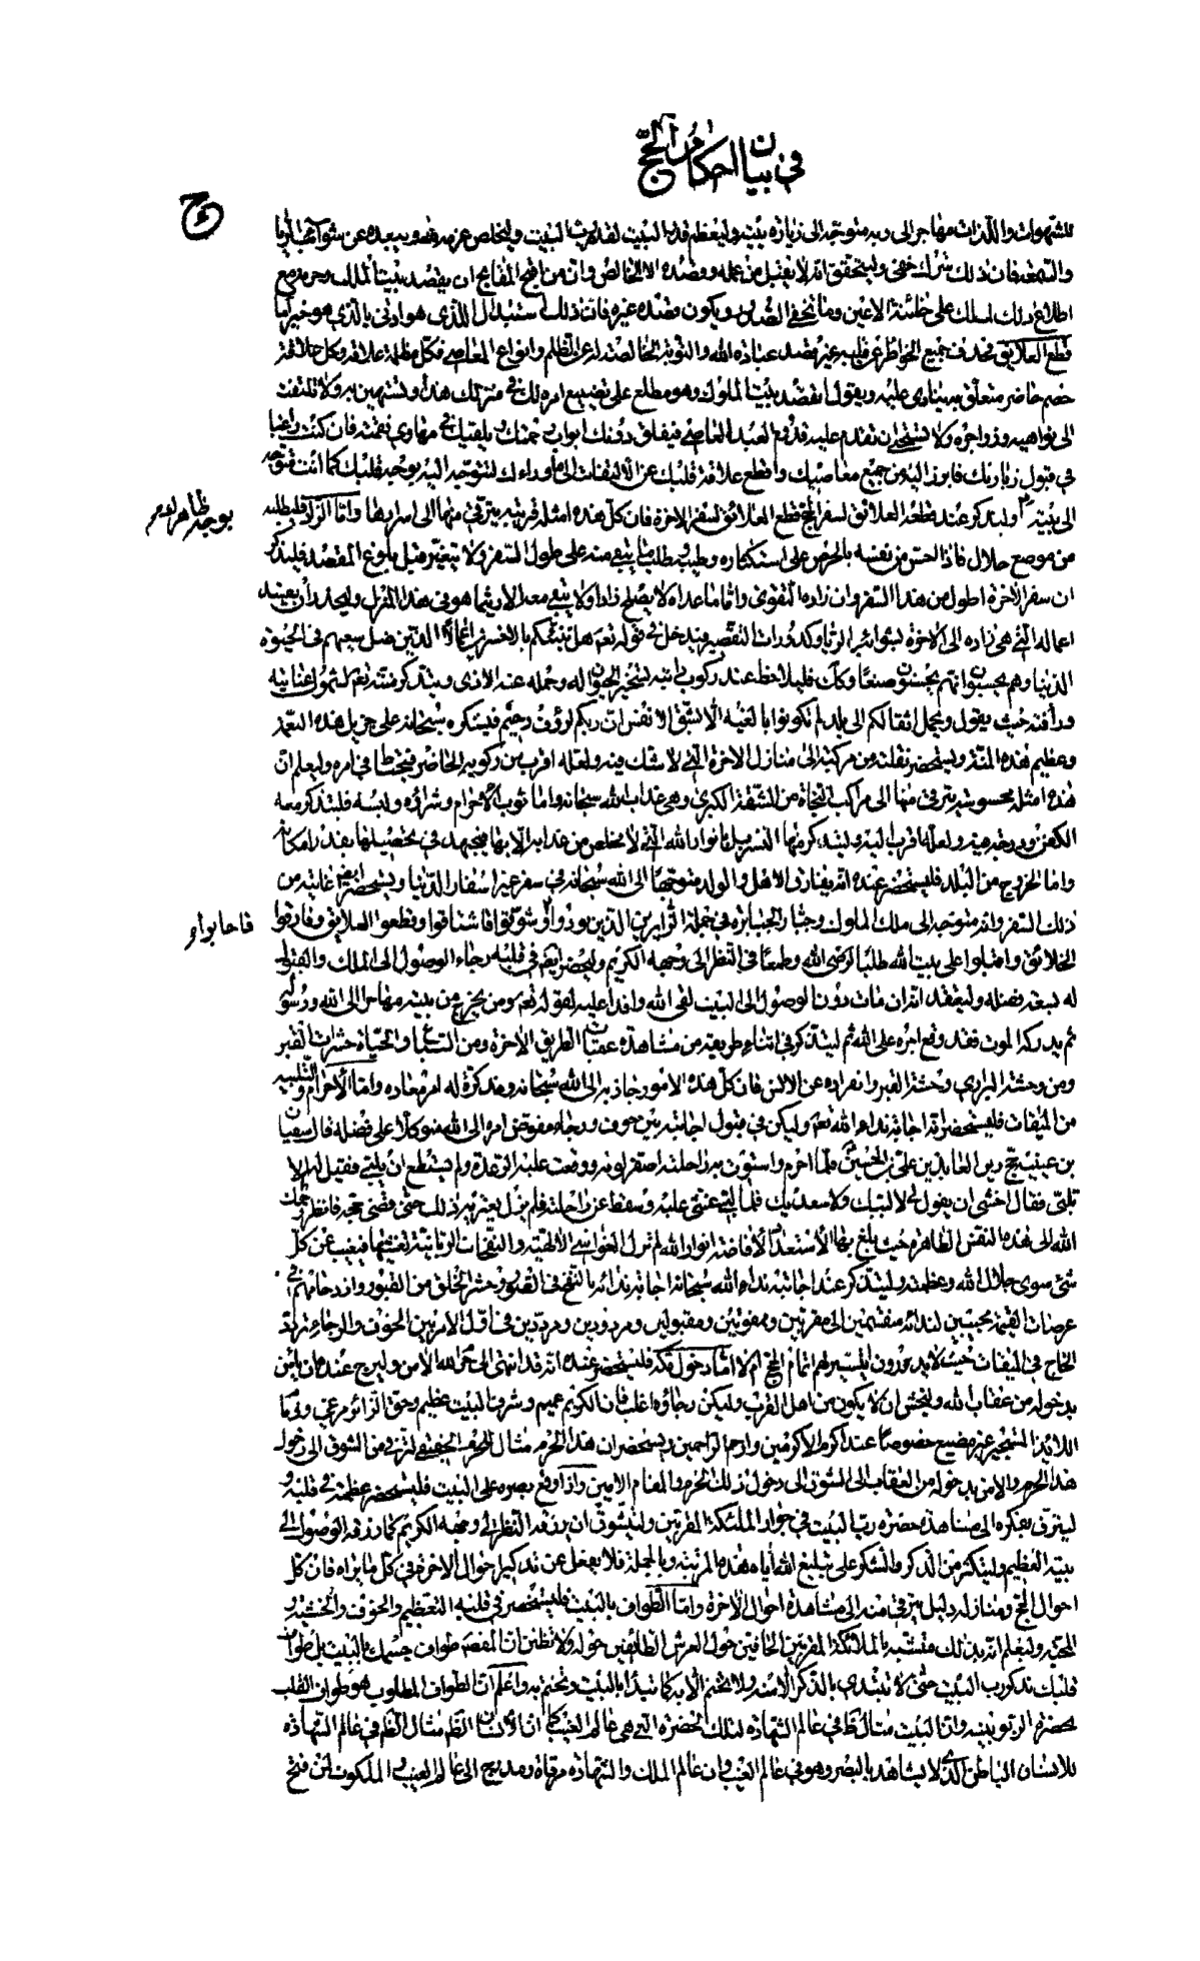 في بيان احكام الحج
ج
للشهوات واللذات مهاجر الى ربه متوجه الى زيارة بيته وليعظم قدر البيت لقدر رب البيت وليخلص عزمه لله ويبعده عن شوائب الريا
والسمعة فان ذلك شرك خفى وليتحقق انه لا يقبل من عمله وقصده الا الخالص وان من اقبح المقابح ان يقصد بيت الملك وحرمه مع
اطلاع ذلك الملك على خائنة الاعين وما تخفى الصدور ويكون قصده غيره فان ذلك استبدال الذى هو ادنى بالذى هو خير واما
قطع العلايق فحذف جميع الخواطر عن قلبه غير قصد عبادة الله والتوبة الخالصة له عن الظلم وانواع المعاصى فكل مظلمة علاقة وكل علاقة
خصم حاضر متعلق به ينادى عليه ويقول اتقصد بيت الملوك وهو مطلع على تضييع امره لك فى منزلك هذا وتستهين به ولا تلتفت
الى نواهيه وزواجره ولا تستحيى ان تقدم عليه قدوم العبد العاصى فيغلق دونك ابواب رحمته ويلقيك فى مهاوى نقمته فان كنت راغبا
فى قبول زيارتك فابرز اليه من جميع معاصيك واقطع علاقة قلبك عن الالتفات الى ما وراءك لتتوجه اليه بوجه قلبك كما انت متوجه
بوجه ظاهرك
الى بيته وليذكر عند قطعه العلائق لسفر الحج قطع العلائق لسفر الاخرة فان كل هذه امثلة قريبة يترقى منها الى اسرارها واما الزاد فليطلبه
من موضع حلال فاذا احس من نفسه بالحرص على استكثاره وطيبه وطلب ما يبقى منه على طول السفر ولا يتغير قبل بلوغ المقصد فليذكر
ان سفر الاخرة اطول من هذا السفر وان زاده التقوى وان ما عداه لا يصلح زادا ولا يبقى معه الا ريثما هو فى هذا المنزل وليحذر ان يفسد
اعماله التى هى زاده الى الاخرة بشوائب الريا وكدورات التقصير فيدخل فى قوله تعم هل ننبئكم بالاخسرين اعمالا الذين ضل سعيهم فى الحيوة
الدنيا وهم يحسبون انهم يحسنون صنعا وكك فليلاحظ عند ركوب دابته تسخير الحيوان له وحمله عنه الاذى ويتذكر منته تعم لشمول عنايته
ورأفته حيث يقول وتحمل اثقالكم الى بلد لم تكونوا بالغيه الا بشق الانفس ان ربكم لرؤف رحيم فيشكره سبحانه على جزيل هذه النعمة
وعظيم هذه المنة ويستحضر نقلته من مركبه الى منازل الاخرة التى لا شك فيه ولعله اقرب من ركوبه الحاضر فيحتاط فى امره وليعلم ان
هذه امثلة محسوسة يترقى منها الى مراكب النجاة من الشقة الكبرى وهى عذاب الله سبحانه واما ثوب الاحرام وشرائه ولبسه فليتذكر معه
الكفن ودرجه فيه ولعله اقرب اليه وليتذكر منها التسربل بانوار الله التى لا مخلص من عذابه الا بها فيجتهد فى تحصيلها بقدر امكانه
واما الخروج من البلد فليستحضر عنده انه يفارق الاهل والولد متوجها الى الله سبحانه فى سفر غير اسفار الدنيا ويستحضر ايضم غايته من
ذلك السفر وانه متوجه الى ملك الملوك وجبار الجبابرة فى جملة الزائرين الذين نودوا وشوقوا فاشتاقوا وقطعوا العلايق وفارقوا
فاجابوا و
الخلائق واقبلوا على بيت الله طلبا لرضى الله وطمعا فى النظر الى وجهه الكريم وليحضر ايضم فى قلبه رجاء الوصول الى الملك والقبول
له بسعة فضله وليعتقد انه ان مات دون الوصول الى البيت لقى الله وافدا عليه لقوله تعم ومن يخرج من بيته مهاجرا الى الله ورسوله
ثم يدركه الموت فقد وقع اجره على الله ثم ليتذكر فى اثناء طريقه من مشاهدة عقبات الطريق الاخرة ومن السباع والحيات حشرات القبر
ومن وحشة البرارى وحشة القبر وانفراده عن الانس فان كل هذه الامور جاذبة الى الله سبحانه ومذكرة له امر معاده واما الاحرام والتلبية
من الميقات فليستحضر انه اجابة نداء الله تعم وليكن فى قبول اجابته بين خوف ورجاء مفوض امره الى الله متوكلا على فضله قال سفيان
بن عيينة حج زين العابدين على بن الحسين فلما احرم واستوت به راحلته اصفر لونه ووقعت عليه الرعدة ولم يستطع ان يلبى فقيل له لم لا
تلبى فقال اخشى ان يقول لى لا لبيك ولا سعديك فلما لبى غشى عليه وسقط عن راحلته فلم يزل يعتريه ذلك حتى قضى حجه فانظر رحمك
الله الى هذه النفس الطاهرة حيث بلغ بها الاستعداد لافاضة انوار الله لم تزل الغواشى الالهية والنفحات الربانية تغشيها فيغيب عن كل
شئ سوى جلال الله وعظمته وليتذكر عند اجابته نداء الله سبحانه اجابة ندائه بالنفخ فى الصور وحشر الخلق من القبور وازدحامهم فى
عرصات القيمة مجيبين لندائه منقسمين الى مقربين وممقوتين ومقبولين ومردودين ومرددين فى اول الامر بين الخوف والرجاء تردد
الحاج فى الميقات حيث لا يدرون ايتيسر لهم اتمام الحج ام لا اما دخول مكة فليستحضر عنده انه قد انتهى الى حرم الله الامن وليرج عنده ان يأمن
بدخوله من عقاب الله وليخش ان لا يكون من اهل القرب وليكن رجاؤه اغلب فان الكريم عميم وشرف البيت عظيم وحق الزائر مرعى وذمام
اللائذ المستجير غير مضيع خصوصا عند اكرم الاكرمين وارحم الراحمين ويستحضر ان هذا الحرم مثال للحرم الحقيقى لترقى من الشوق الى دخول
هذا الحرم والامن بدخوله من العقاب الى الشوق الى دخول ذلك الحرم والمقام الامين واذا وقع بصره على البيت فليستحضر عظمته فى قلبه و
ليترق بفكره الى مشاهدة حضرة رب البيت فى جوار الملئكة المقربين وليتشوق ان يرزقه النظر الى وجهه الكريم كما رزقه الوصول الى
بيته العظيم وليتكثر من الذكر والشكر على تبليغ الله اياه هذه المرتبة وبالجملة فلا يغفل عن تذكير احوال الاخرة فى كل ما يراه فان كل
احوال الحج ومنازله دليل يترقى منه الى مشاهدة احوال الاخرة واما الطواف بالبيت فليستحضر فى قلبه التعظيم والخوف والخشية و
المحبة وليعلم انه بذلك متشبه بالملائكة المقربين الحافين حول العرش الطائفين حوله ولا تظنن ان المقصم طواف جسمك بالبيت بل طواف
قلبك بذكر رب البيت حتى لا تبتدى بالذكر الا منه ولا تختم الا به كما تبتدأ بالبيت وتختم به واعلم ان الطواف المطلوب هو طواف القلب
بحضرة الربوبية وان البيت مثال ظ فى عالم الشهادة لتلك الحضرة التى هى عالم الغيب كما ان الانسان الظم مثال الظم فى عالم الشهادة
للانسان الباطن الذى لا يشاهد بالبصر وهو فى عالم الغيب وان عالم الملك والشهادة مرقاة ومدرج الى عالم الغيب والملكوت لمن فتح